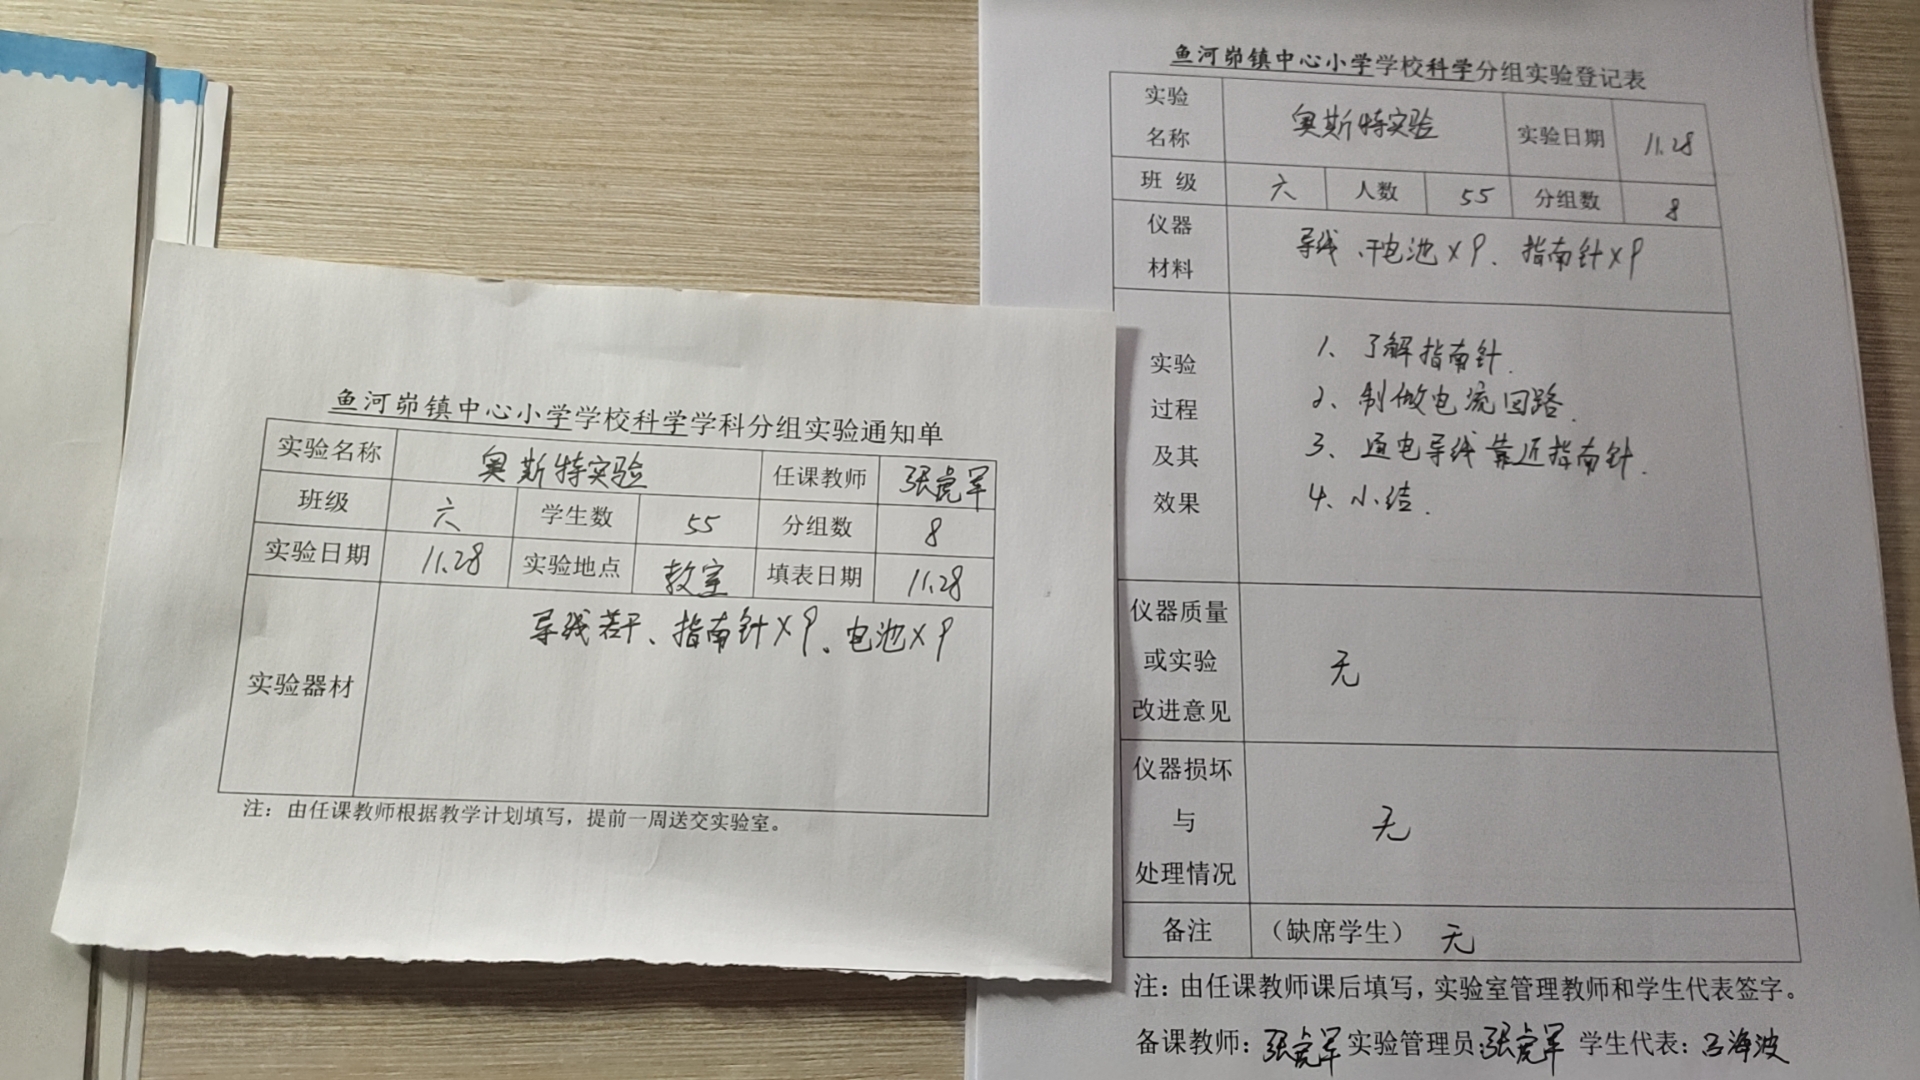 鱼河峁镇中心小学学校科学学科分组实验通知单
实验名称 奥斯特实验 任课教师 张虎军
班级 六 学生数 55 分组数 8
实验日期 11.28 实验地点 教室 填表日期 11.28
实验器材 导线若干、指南针×9、电池×9
注：由任课教师根据教学计划填写，提前一周送交实验室。
鱼河峁镇中心小学学校科学分组实验登记表
实验名称 奥斯特实验 实验日期 11.28
班 级 六 人数 55 分组数 8
仪器材料 导线、干电池×9、指南针×9
实验过程及其效果
1、了解指南针.
2、制做电流回路.
3、通电导线靠近指南针.
4、小结.
仪器质量或实验改进意见 无
仪器损坏与处理情况 无
备注 （缺席学生） 无
注：由任课教师课后填写，实验室管理教师和学生代表签字。
备课教师：张虎军 实验管理员：张虎军 学生代表：吕海波